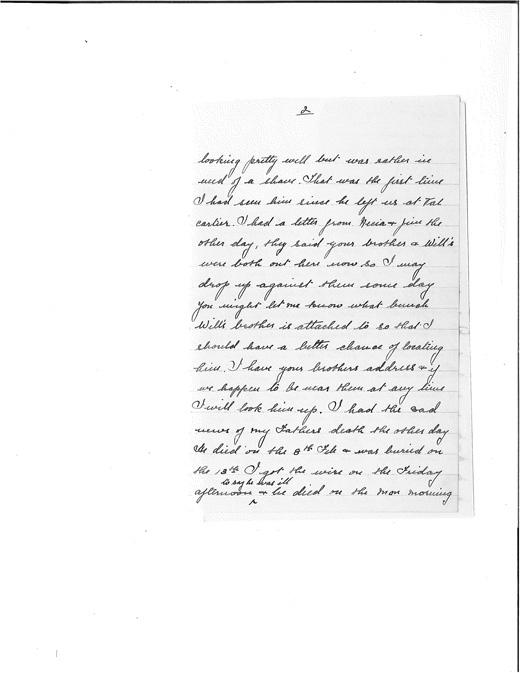 2
looking pretty well but was rather in
need of a shave. That was the first time
I had seen him since he left us at Val
cartier. I had a letter from & Jim the
other day, they said your brother & Will's
were both out here now so I may
drop up against them some day
You might let me know what bunch
Will's brother is attached to so that I
should have a better chance of locating
him. I have your brothers address & if
we happen to be near them at any time
I will look him up. I had the sad
news of my Fathers death the other day
He died on the 8th Feb & was buried on
the 13th I got the wire on the Friday
to say he was ill
afternoon & he died on the Mon morning
^